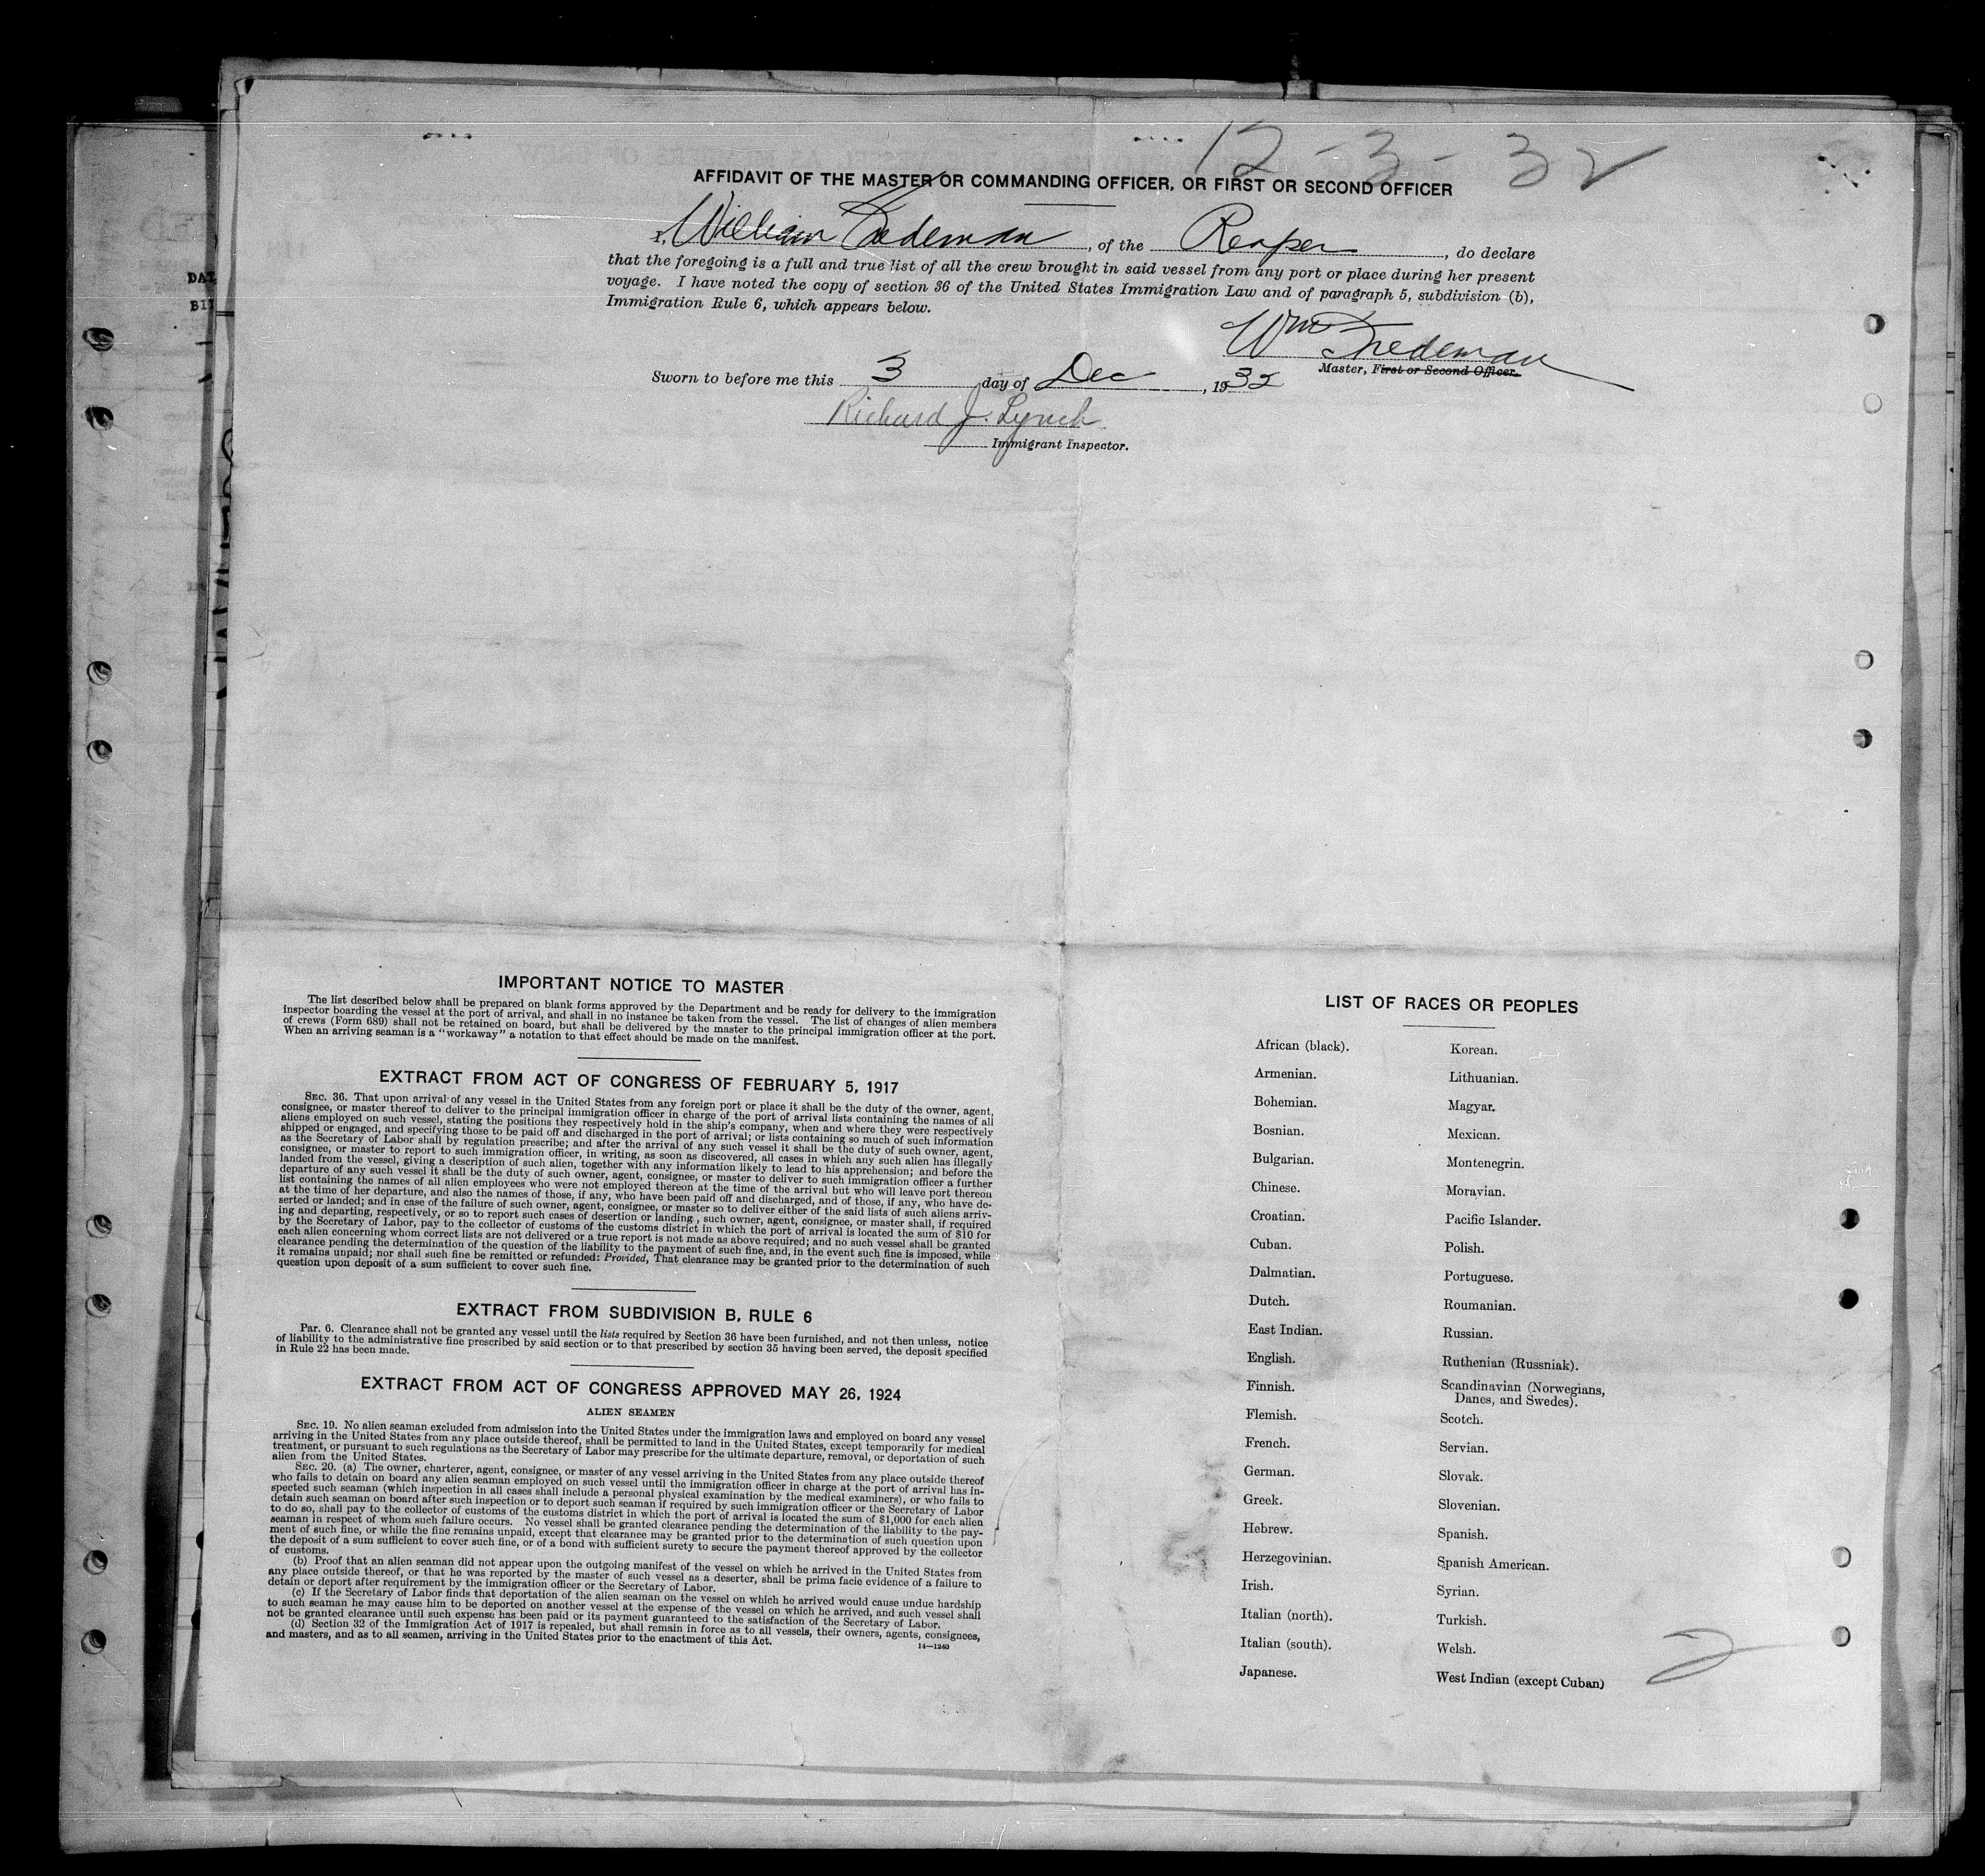 12-3-32
AFFIDAVIT OF THE MASTER OR COMMANDING OFFICER, OR FIRST OR SECOND OFFICER
I, William, of the Reaper, do declare
that the foregoing is a full and true list of all the crew brought in said vessel from any port or place during her present
voyage. I have noted the copy of section 36 of the United States Immigration Law and of paragraph 5, subdivision (b),
Immigration Rule 6, which appears below.
Wm
Master, First or Second Officer.
Sworn to before me this 3 day of Dec, 1932
Richard J. Lynch
Immigrant Inspector.
DAT
BIL
IMPORTANT NOTICE TO MASTER
The list described below shall be prepared on blank forms approved by the Department and be ready for delivery to the immigration
inspector boarding the vessel at the port of arrival, and shall in no instance be taken from the vessel. The list of changes of alien members
of crews (Form 689) shall not be retained on board, but shall be delivered by the master to the principal immigration officer at the port.
When an arriving seaman is a "workaway" a notation to that effect should be made on the manifest.
EXTRACT FROM ACT OF CONGRESS OF FEBRUARY 5, 1917
SEC. 36. That upon arrival of any vessel in the United States from any foreign port or place it shall be the duty of the owner, agent,
consignee, or master thereof to deliver to the principal immigration officer in charge of the port of arrival lists containing the names of all
aliens employed on such vessel, stating the positions they respectively hold in the ship's company, when and where they were respectively
shipped or engaged, and specifying those to be paid off and discharged in the port of arrival; or lists containing so much of such information
as the Secretary of Labor shall by regulation prescribe; and after the arrival of any such vessel it shall be the duty of such owner, agent,
consignee, or master to report to such immigration officer, in writing, as soon as discovered, all cases in which any such alien has illegally
landed from the vessel, giving a description of such alien, together with any information likely to lead to his apprehension; and before the
departure of any such vessel it shall be the duty of such owner, agent, consignee, or master to deliver to such immigration officer a further
list containing the names of all alien employees who were not employed thereon at the time of the arrival but who will leave port thereon
at the time of her departure, and also the names of those, if any, who have been paid off and discharged, and of those, if any, who have de-
serted or landed; and in case of the failure of such owner, agent, consignee, or master so to deliver either of the said lists of such aliens arriv-
ing and departing, respectively, or so to report such cases of desertion or landing, such owner, agent, consignee, or master shall, if required
by the Secretary of Labor, pay to the collector of customs of the customs district in which the port of arrival is located the sum of $10 for
each alien concerning whom correct lists are not delivered or a true report is not made as above required; and no such vessel shall be granted
clearance pending the determination of the question of the liability to the payment of such fine, and, in the event such fine is imposed, while
it remains unpaid; nor shall such fine be remitted or refunded: Provided, That clearance may be granted prior to the determination of such
question upon deposit of a sum sufficient to cover such fine.
EXTRACT FROM SUBDIVISION B, RULE 6
Par. 6. Clearance shall not be granted any vessel until the lists required by Section 36 have been furnished, and not then unless, notice
of liability to the administrative fine prescribed by said section or to that prescribed by section 35 having been served, the deposit specified
in Rule 22 has been made.
EXTRACT FROM ACT OF CONGRESS APPROVED MAY 26, 1924
ALIEN SEAMEN
SEC. 19. No alien seaman excluded from admission into the United States under the immigration laws and employed on board any vessel
arriving in the United States from any place outside thereof, shall be permitted to land in the United States, except temporarily for medical
treatment, or pursuant to such regulations as the Secretary of Labor may prescribe for the ultimate departure, removal, or deportation of such
alien from the United States.
SEC. 20. (a) The owner, charterer, agent, consignee, or master of any vessel arriving in the United States from any place outside thereof
who fails to detain on board any alien seaman employed on such vessel until the immigration officer in charge at the port of arrival has in-
spected such seaman (which inspection in all cases shall include a personal physical examination by the medical examiners), or who fails to
detain such seaman on board after such inspection or to deport such seaman if required by such immigration officer or the Secretary of Labor
to do so, shall pay to the collector of customs of the customs district in which the port of arrival is located the sum of $1,000 for each alien
seaman in respect of whom such failure occurs. No vessel shall be granted clearance pending the determination of the liability to the pay-
ment of such fine, or while the fine remains unpaid, except that clearance may be granted prior to the determination of such question upon
the deposit of a sum sufficient to cover such fine, or of a bond with sufficient surety to secure the payment thereof approved by the collector
of customs.
(b) Proof that an alien seaman did not appear upon the outgoing manifest of the vessel on which he arrived in the United States from
any place outside thereof, or that he was reported by the master of such vessel as a deserter, shall be prima facie evidence of a failure to
detain or deport after requirement by the immigration officer or the Secretary of Labor.
(c) If the Secretary of Labor finds that deportation of the alien seaman on the vessel on which he arrived would cause undue hardship
to such seaman he may cause him to be deported on another vessel at the expense of the vessel on which he arrived, and such vessel shall
not be granted clearance until such expense has been paid or its payment guaranteed to the satisfaction of the Secretary of Labor.
(d) Section 32 of the Immigration Act of 1917 is repealed, but shall remain in force as to all vessels, their owners, agents, consignees,
and masters, and as to all seamen, arriving in the United States prior to the enactment of this Act.
14—1240
LIST OF RACES OR PEOPLES
African (black).
Armenian.
Bohemian.
Bosnian.
Bulgarian.
Chinese.
Croatian.
Cuban.
Dalmatian.
Dutch.
East Indian.
English.
Finnish.
Flemish.
French.
German.
Greek.
Hebrew.
Herzegovinian.
Irish.
Italian (north).
Italian (south).
Japanese.
Korean.
Lithuanian.
Magyar.
Mexican.
Montenegrin.
Moravian.
Pacific Islander.
Polish.
Portuguese.
Roumanian.
Russian.
Ruthenian (Russniak).
Scandinavian (Norwegians,
Danes, and Swedes).
Scotch.
Servian.
Slovak.
Slovenian.
Spanish.
Spanish American.
Syrian.
Turkish.
Welsh.
West Indian (except Cuban)
2